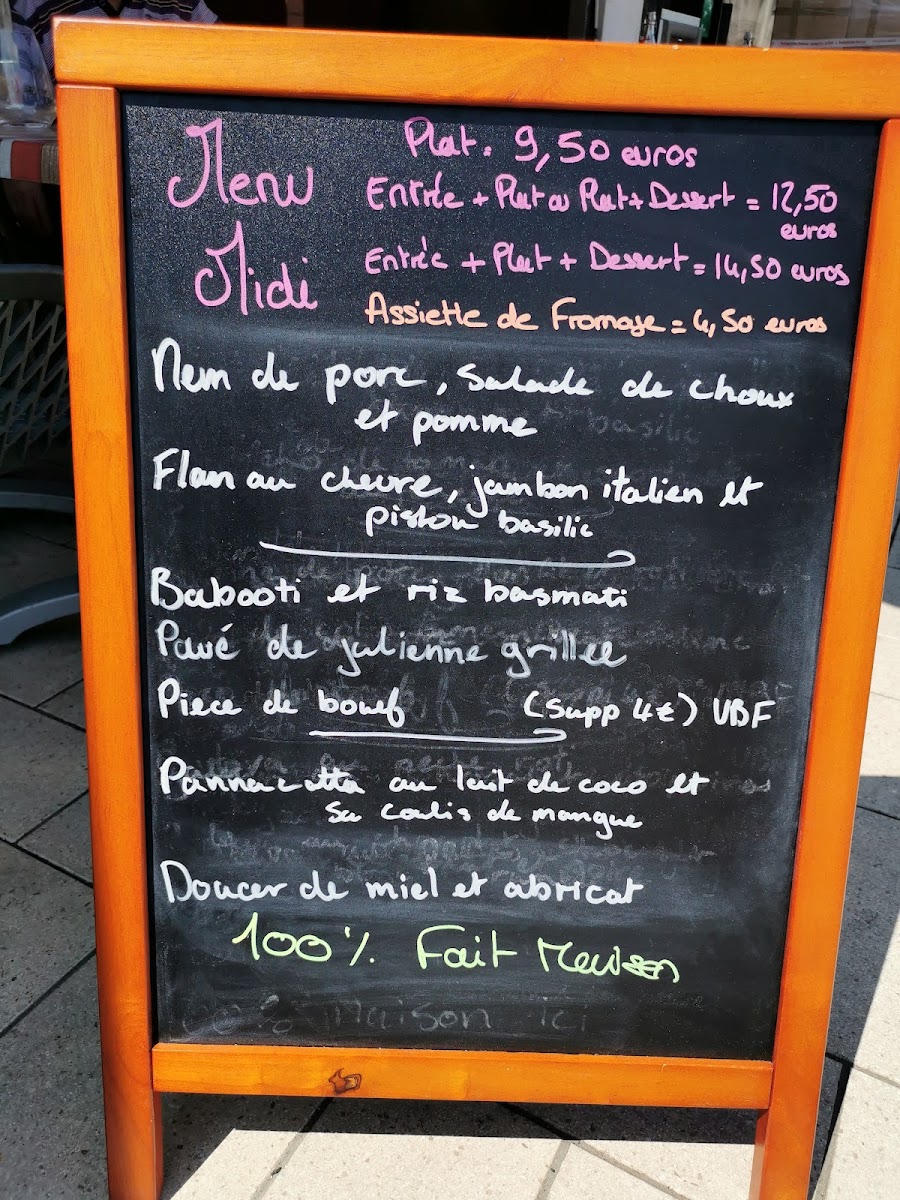 Menu
Midi
Plat. 9,50 euros
Entrée + Plat ou Plat + Dessert = 12,50
euros
Entrée + Plat + Dessert = 14,50 euros
Assiette de Fromage = 4,50 euros
Nem de porc, salade de choux
et pomme
Flan au chevre, jambon italien et
pistou basilic
Babooti et riz basmati
Pavé de julienne grillee
Piece de bouef (supp 4€) VBF
Pannacotta au lait de coco et
sa coulis de mangue
Doucer de miel et abricot
100% Fait Maison
Maison ici